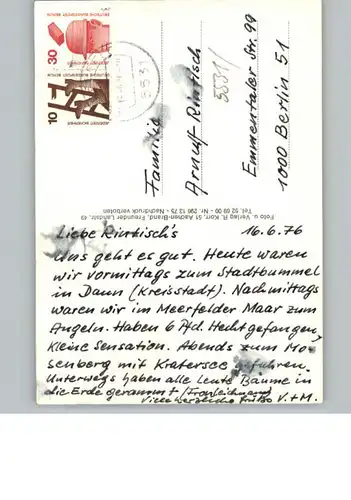 30
DEUTSCHE BUNDESPOST BERLIN
JEDERZEIT SICHERHEIT
10
DEUTSCHE BUNDESPOST BERLIN
JEDERZEIT SICHERHEIT
5531
Familie
Arnulf Rintisch
5531/
Emmentaler Str. 99
1000 Berlin 51
Foto u. Verlag R. Korr, 51 Aachen-Brand, Freunder Landstr. 43
Tel. 52 69 00 - Nr. 290 13 75 - Nachdruck verboten
Liebe Rintisch's 16.6.76
Uns geht es gut. Heute waren
wir vormittags zum Stadtbummel
in Daun (Kreisstadt). Nachmittags
waren wir im Meerfelder Maar zum
Angeln. Haben 6 Pfd. Hecht gefangen,
kleine Sensation. Abends zum Mo-
senberg mit Kratersee gefahren.
Unterwegs haben alle Leute Bäume in
die Erde gerammt (Fronleichnam)
Viele herzliche Grüße V. + M.